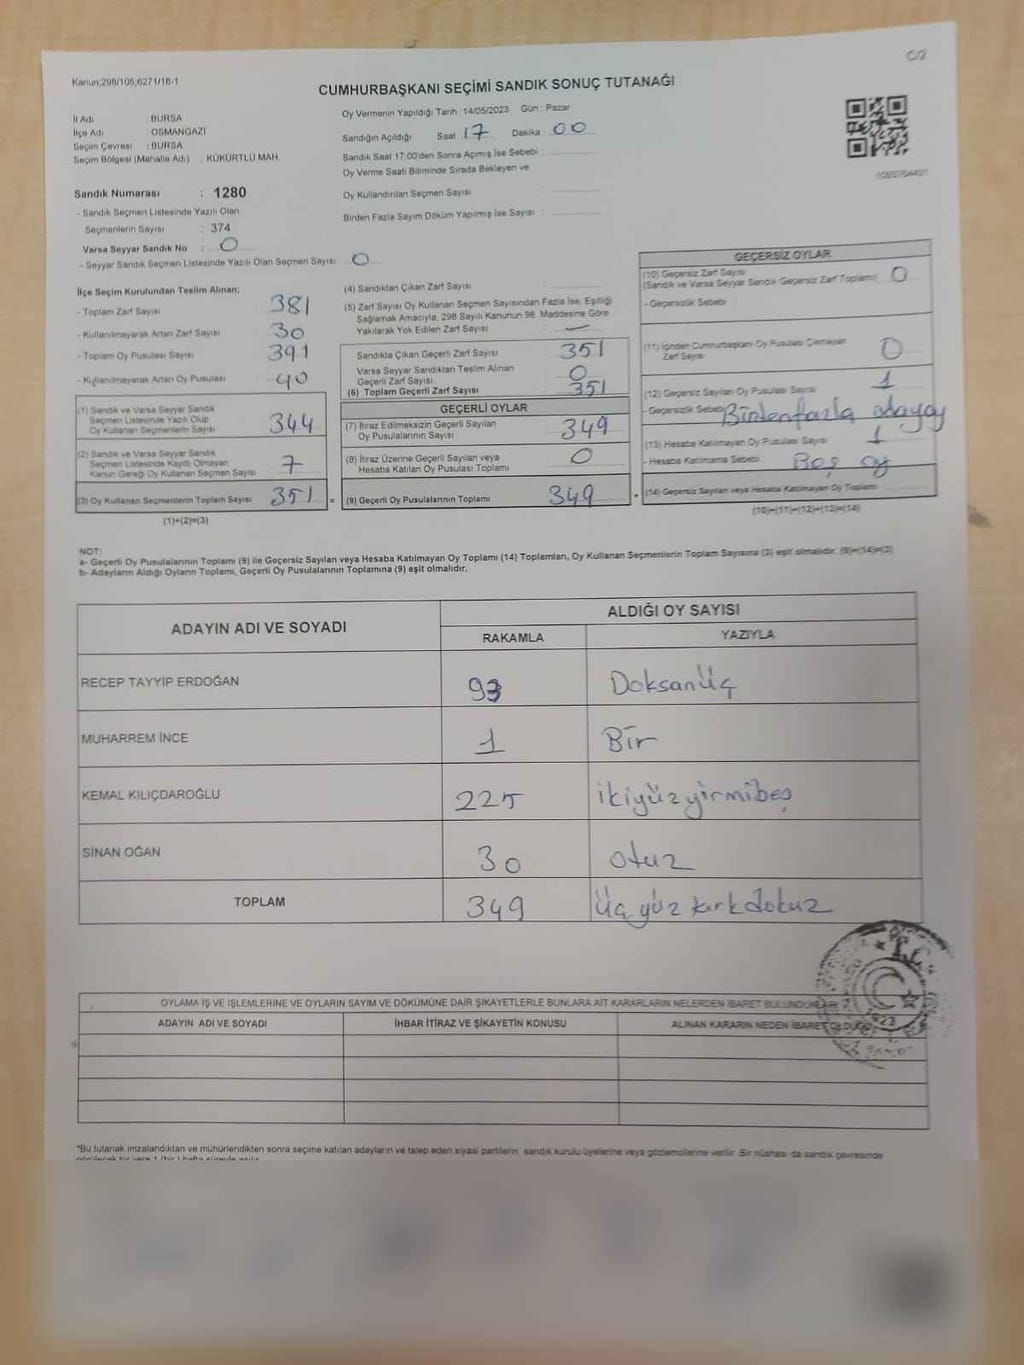 C/2
Kanun;298/105,6271/18-1
CUMHURBAŞKANI SEÇİMİ SANDIK SONUÇ TUTANAĞI
İl Adı : BURSA
İlçe Adı : OSMANGAZİ
Seçim Çevresi : BURSA
Seçim Bölgesi (Mahalle Adı) : KÜKÜRTLÜ MAH.
Sandık Numarası : 1280
- Sandık Seçmen Listesinde Yazılı Olan
Seçmenlerin Sayısı : 374
Varsa Seyyar Sandık No : 0
- Seyyar Sandık Seçmen Listesinde Yazılı Olan Seçmen Sayısı : 0
Oy Vermenin Yapıldığı Tarih : 14/05/2023 Gün : Pazar
Sandığın Açıldığı Saat : 17 Dakika : 00
Sandık Saat 17:00'den Sonra Açımış İse Sebebi :
Oy Verme Saati Bitiminde Sırada Bekleyen ve
Oy Kullandırılan Seçmen Sayısı :
Birden Fazla Sayım Döküm Yapılmış İse Sayısı :
İlçe Seçim Kurulundan Teslim Alınan;
- Toplam Zarf Sayısı : 381
- Kullanılmayarak Artan Zarf Sayısı : 30
- Toplam Oy Pusulası Sayısı : 391
- Kullanılmayarak Artan Oy Pusulası : 40
(1) Sandık ve Varsa Seyyar Sandık
Seçmen Listesinde Yazılı Olup
Oy Kullanan Seçmenlerin Sayısı : 344
(2) Sandık ve Varsa Seyyar Sandık
Seçmen Listesinde Kaydı Olmayan
Kanun Gereği Oy Kullanan Seçmen Sayısı : 7
(3) Oy Kullanan Seçmenlerin Toplam Sayısı : 351 =
(1)+(2)=(3)
(4) Sandıktan Çıkan Zarf Sayısı :
(5) Zarf Sayısı Oy Kullanan Seçmen Sayısından Fazla İse, Eşitliği
Sağlamak Amacıyla, 298 Sayılı Kanunun 98. Maddesine Göre
Yakılarak Yok Edilen Zarf Sayısı : —
Sandıkta Çıkan Geçerli Zarf Sayısı : 351
Varsa Seyyar Sandıktan Teslim Alınan
Geçerli Zarf Sayısı : 0
(6) Toplam Geçerli Zarf Sayısı : 351
GEÇERLİ OYLAR
(7) İtiraz Edilmeksizin Geçerli Sayılan
Oy Pusulalarının Sayısı : 349
(8) İtiraz Üzerine Geçerli Sayılan veya
Hesaba Katılan Oy Pusulası Toplamı : 0
(9) Geçerli Oy Pusulalarının Toplamı : 349 +
GEÇERSİZ OYLAR
(10) Geçersiz Zarf Sayısı
(Sandık ve Varsa Seyyar Sandık Geçersiz Zarf Toplamı) : 0
- Geçersizlik Sebebi :
(11) İçinden Cumhurbaşkanı Oy Pusulası Çıkmayan
Zarf Sayısı : 0
(12) Geçersiz Sayılan Oy Pusulası Sayısı : 1
- Geçersizlik Sebebi : Birden fazla adaya oy
(13) Hesaba Katılmayan Oy Pusulası Sayısı : 1
- Hesaba Katılmama Sebebi : Boş oy
(14) Geçersiz Sayılan veya Hesaba Katılmayan Oy Toplamı :
(10)+(11)+(12)+(13)=(14)
NOT:
a- Geçerli Oy Pusulalarının Toplamı (9) ile Geçersiz Sayılan veya Hesaba Katılmayan Oy Toplamı (14) Toplamları, Oy Kullanan Seçmenlerin Toplam Sayısına (3) eşit olmalıdır. (9)+(14)=(3)
b- Adayların Aldığı Oyların Toplamı, Geçerli Oy Pusulalarının Toplamına (9) eşit olmalıdır.
ADAYIN ADI VE SOYADI
ALDIĞI OY SAYISI
RAKAMLA YAZIYLA
RECEP TAYYİP ERDOĞAN 93 DoksanÜç
MUHARREM İNCE 1 Bir
KEMAL KILIÇDAROĞLU 225 ikiyüzyirmibeş
SİNAN OĞAN 30 otuz
TOPLAM 349 Üç yüz kırkdokuz
T.C.
OYLAMA İŞ VE İŞLEMLERİNE VE OYLARIN SAYIM VE DÖKÜMÜNE DAİR ŞİKAYETLERLE BUNLARA AİT KARARLARIN NELERDEN İBARET BULUNDUKLARI
ADAYIN ADI VE SOYADI İHBAR İTİRAZ VE ŞİKAYETİN KONUSU ALINAN KARARIN NEDEN İBARET OLDUĞU
*Bu tutanak imzalandıktan ve mühürlendikten sonra seçime katılan adayların ve talep eden siyasi partilerin sandık kurulu üyelerine veya gözlemcilerine verilir. Bir nüshası da sandık çevresinde